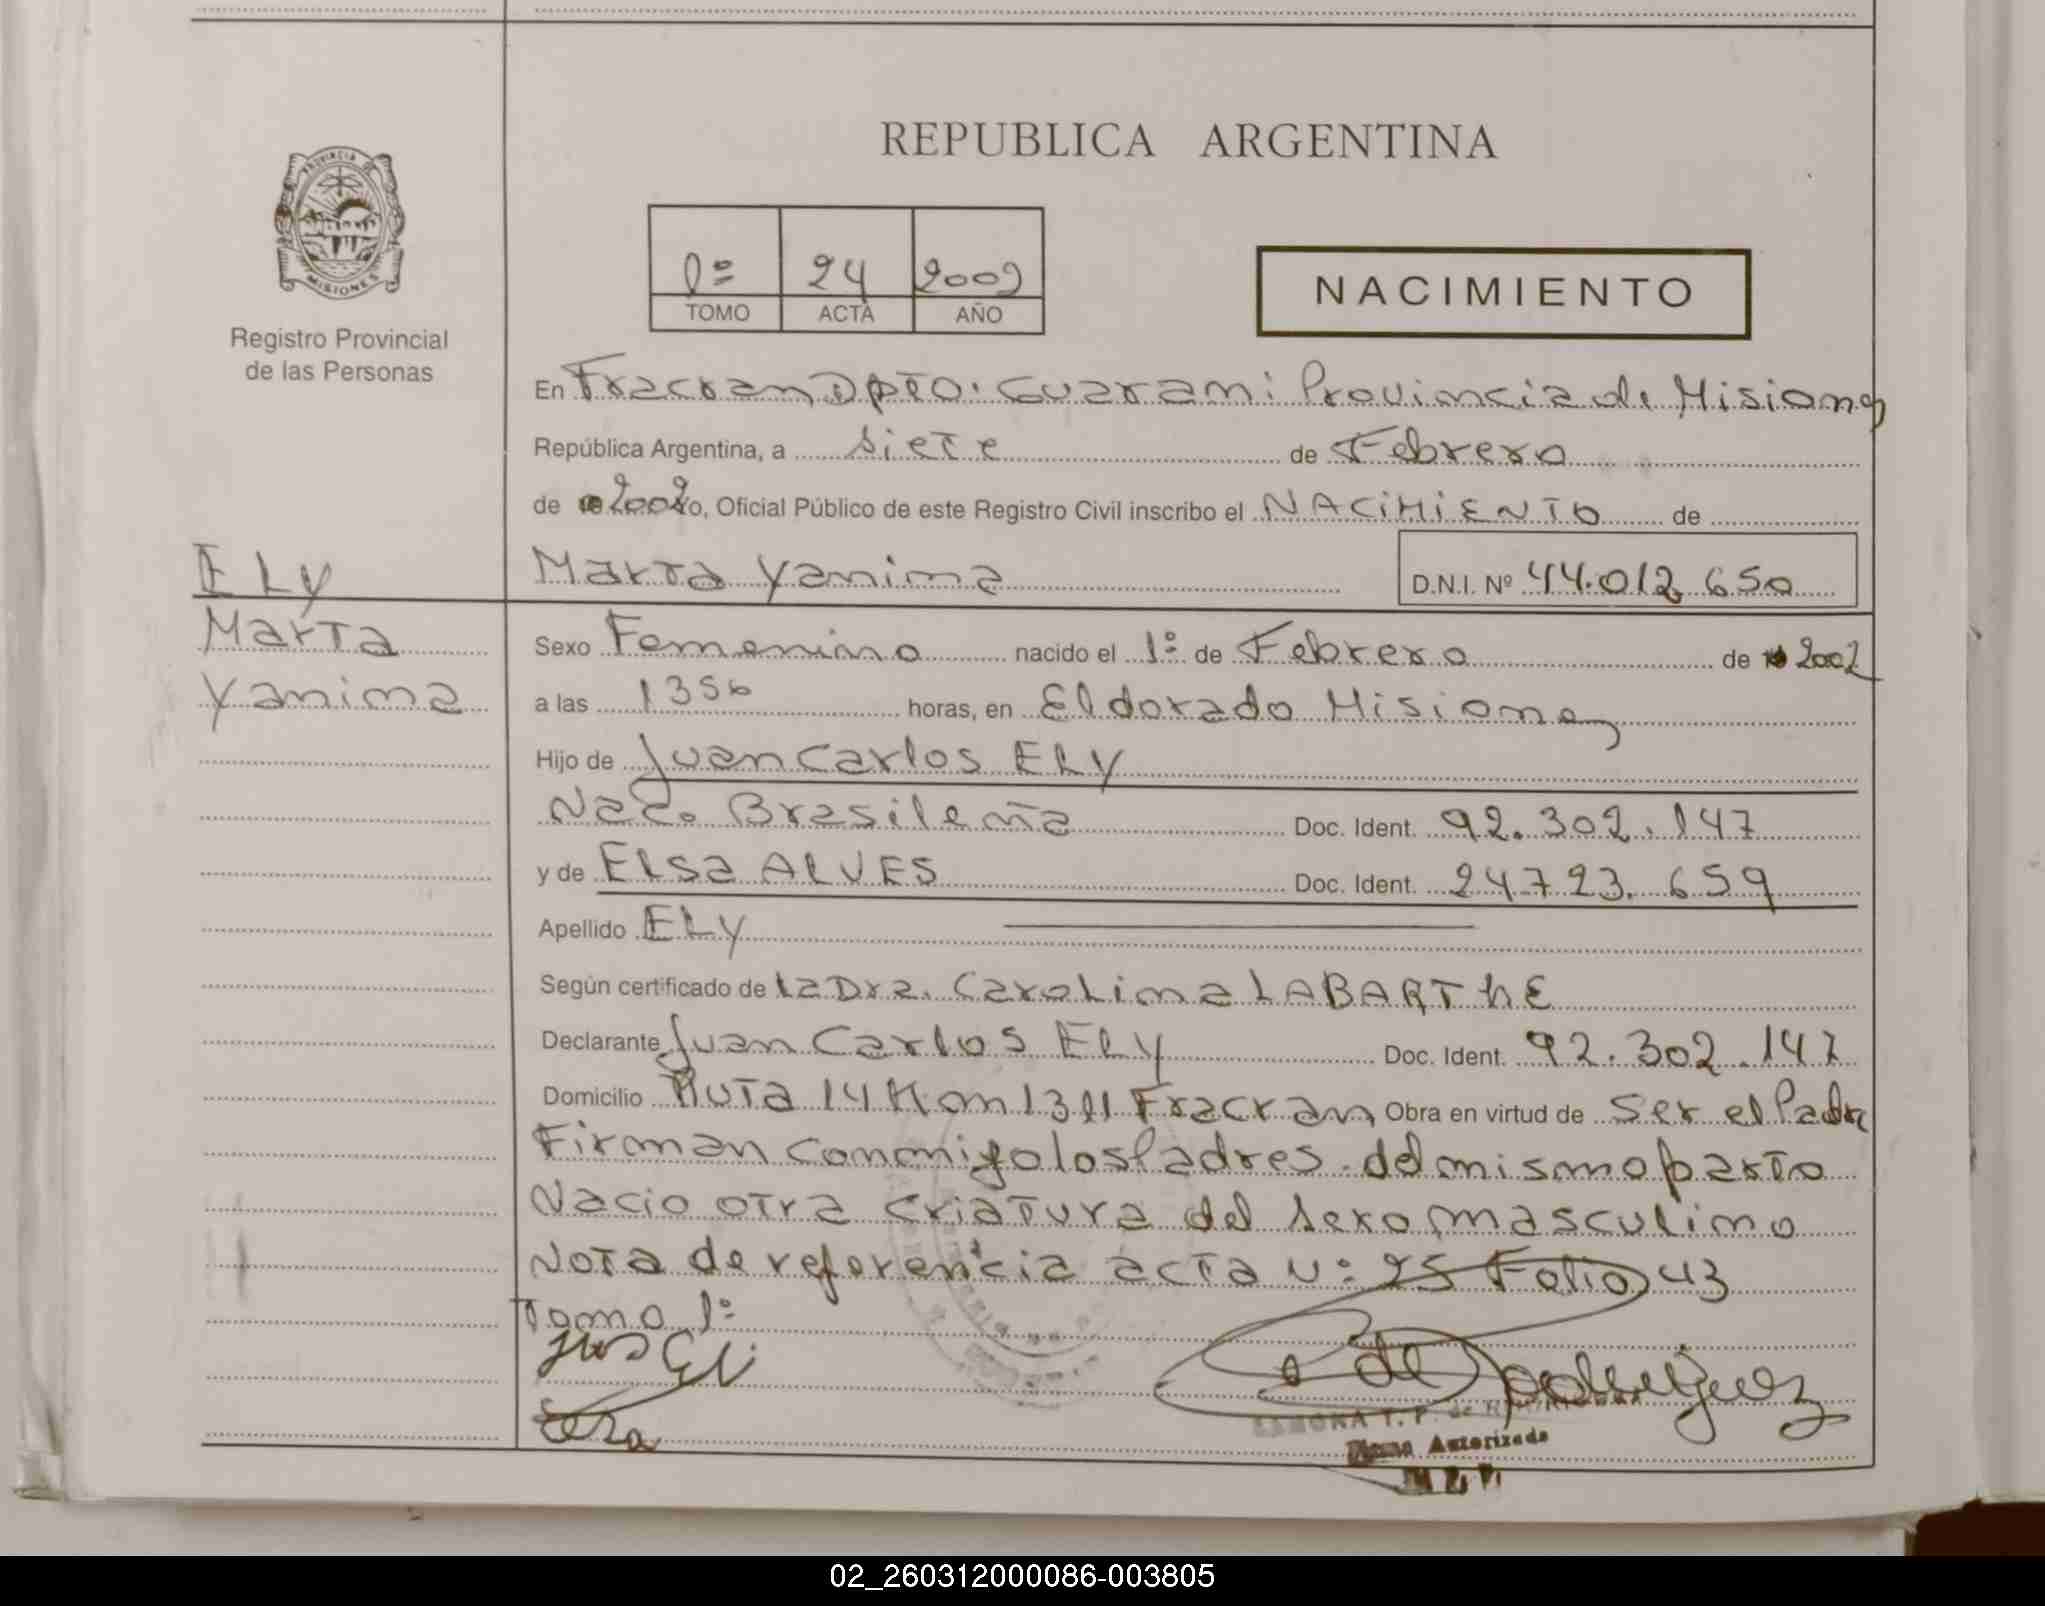 REPUBLICA ARGENTINA
PROVINCIA DE
MISIONES
Registro Provincial
de las Personas
1º 24 2002
TOMO ACTA AÑO
NACIMIENTO
En Fracran Dpto. Guarani Provincia de Misiones
República Argentina, a siete de Febrero
de 2002 yo, Oficial Público de este Registro Civil inscribo el NACIMIENTO de
ELY
Marta Yanina D.N.I. Nº 44.012.650
Marta
Yanina
Sexo Femenino nacido el 1º de Febrero de 2002
a las 1350 horas, en Eldorado Misiones
Hijo de Juan Carlos ELY
Nac. Brasileña Doc. Ident. 92.302.147
y de ELSA ALVES Doc. Ident. 24723.659
Apellido ELY
Según certificado de La Dra. Carolina LABARTHE
Declarante Juan Carlos ELY Doc. Ident. 92.302.147
Domicilio Ruta 14 Km 1311 Fracran Obra en virtud de ser el Padre
Firman conmigo los Padres. del mismo parto
Nacio otra criatura del sexo masculino
Nota de referencia acta Nº 25 Folio 43
Tomo 1º
RAMONA T. P. de RODRIGUEZ
Firma Autorizada
02_260312000086-003805